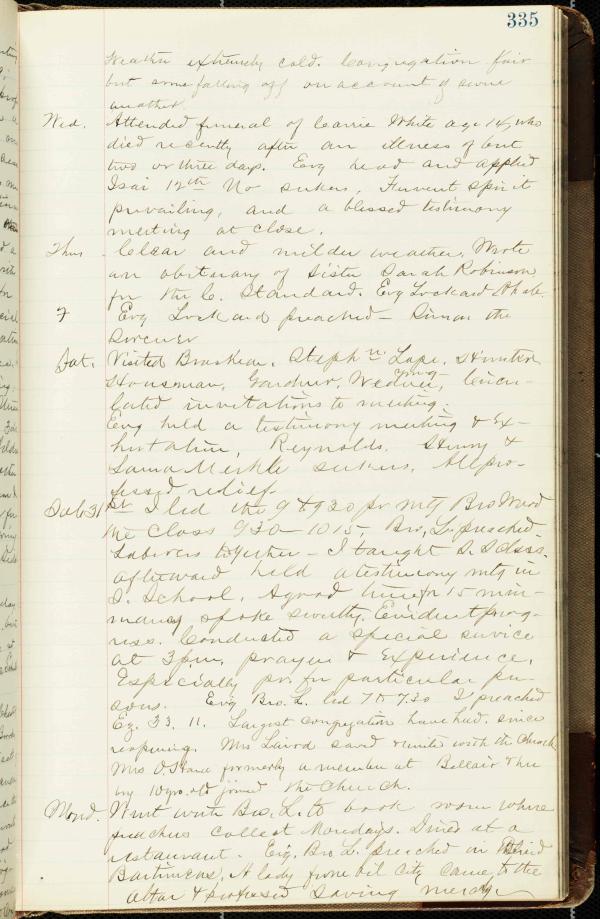 335
Weather extremely cold. Congregation fair
but some falling off on account of some
another.
Wed. Attended funeral of Carrie White age 14, who
died recently after an illness of but
two or three days. Evg head and applied
Isai 12th No sekers, Fervent spirit
prevailing, and a blessed testimony
meeting at close.
Thus. Clear and milder weather. Wrote
an obituary of Sister Sarah Robinson
for the C. Standard. Evg Lockard
F Evg Lockard preached — Simon the
Sorcerer
Sat. Visited Stephn Lape,
Housman, Gardner, Circu-
lated invitations to meeting.
Evg held a testimony meeting & Ex-
hortation, Reynolds. Henry &
Laura Merkle sekers. All pro-
fessed relief.
Sab 31st I led the 9 to 9 30 pr mtg Bro Ward
the Class 9 30 — 10 15, Bro. L. preached.
Laborers together — I taught S. S Class.
Afterward held a testimony mtg in
S. School. A good time for 15 min-
many spoke sweetly. Evident prog-
ress. Conducted a special service
at 3 pm, prayer & Experience.
Especially pr. for particular per-
sons. Evg Bro. L. led 7 to 7.30 I preached
Ez. 33. 11. Largest congregation have had since
reopening. Mrs Laird saved & unite with the Church
Mrs formerly a member at Bellair & her
10 yr. old joined the Church.
Mond. Went with Bro. L. to book room where
preachers collect Mondays. Dined at a
restaurant. Evg. Bro L. preached on Blind
Bartimeus, A lady from Oil City came to the
altar & professed saving mercy.